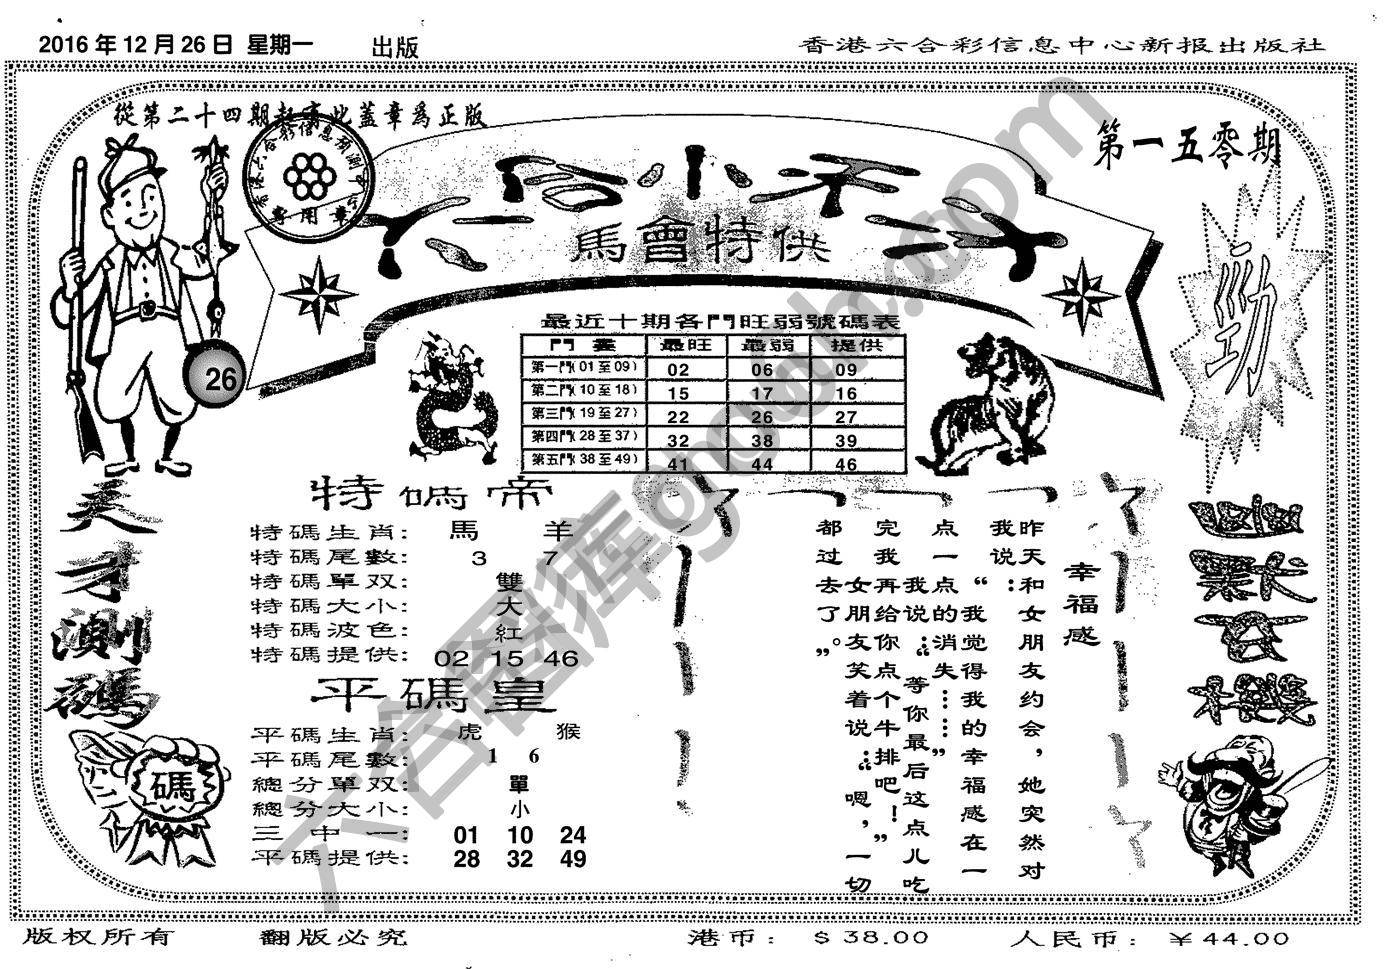 2016年12月26日 星期一 出版
香港六合彩信息中心新报出版社
從第二十四期起寄此蓋章為正版
第一五零期
六合小天子
馬會特供
專用章
26
勁
最近十期各門旺弱號碼表
門 最旺 最弱 提供
第一門(01至09) 02 06 09
第二門(10至18) 15 17 16
第三門(19至27) 22 26 27
第四門(28至37) 32 38 39
第五門(38至49) 41 44 46
天才測碼
特碼帝
特碼生肖: 馬 羊
特碼尾數: 3 7
特碼單双: 雙
特碼大小: 大
特碼波色: 紅
特碼提供: 02 15 46
平碼皇
平碼生肖: 虎 猴
平碼尾數: 1 6
總分單双: 單
總分大小: 小
三中一: 01 10 24
平碼提供: 28 32 49
碼
幸福感
昨天和女朋友约会，她突然对
我说：“我觉得我的幸福感在一
点一点的消失……”
我说：“等你最后这点儿吃
完我再给你点个牛排吧！”
女朋友笑着说：“嗯，一切
都过去了。”
六合图库
版权所有 翻版必究
港币: $38.00 人民币: ￥44.00